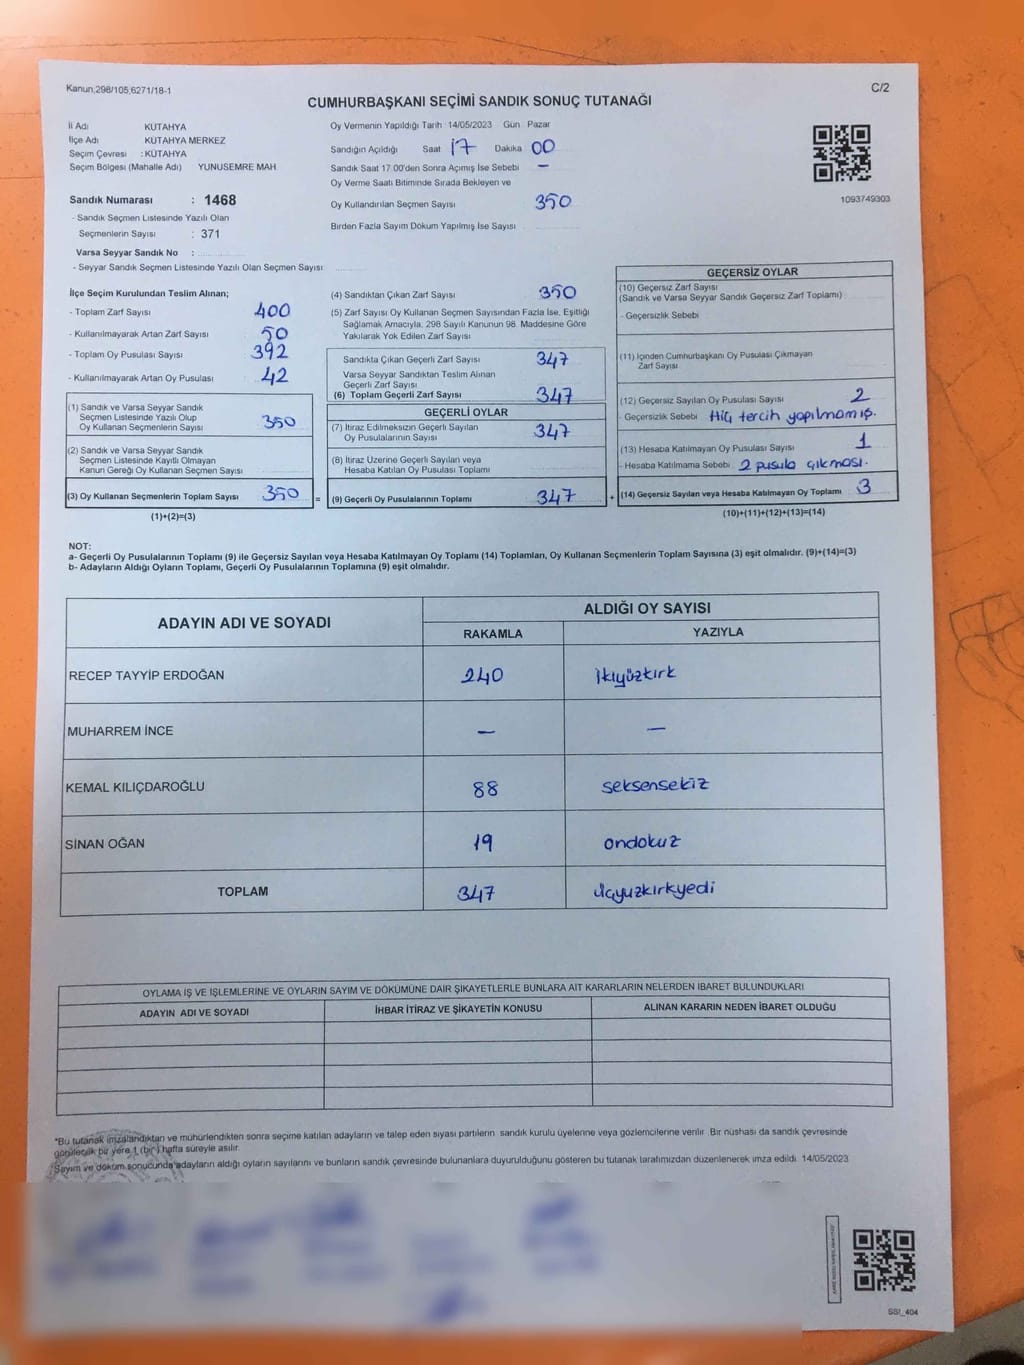 Kanun,298/105;6271/18-1
C/2
CUMHURBAŞKANI SEÇİMİ SANDIK SONUÇ TUTANAĞI
İl Adı KÜTAHYA
İlçe Adı KÜTAHYA MERKEZ
Seçim Çevresi : KÜTAHYA
Seçim Bölgesi (Mahalle Adı) YUNUSEMRE MAH
Oy Vermenin Yapıldığı Tarih 14/05/2023 Gün Pazar
Sandığın Açıldığı Saat 17 Dakika 00
Sandık Saat 17.00'den Sonra Açımış İse Sebebi —
Oy Verme Saati Bitiminde Sırada Bekleyen ve
Oy Kullandırılan Seçmen Sayısı 350
Birden Fazla Sayım Döküm Yapılmış İse Sayısı
1093749303
Sandık Numarası : 1468
- Sandık Seçmen Listesinde Yazılı Olan
Seçmenlerin Sayısı : 371
Varsa Seyyar Sandık No :
- Seyyar Sandık Seçmen Listesinde Yazılı Olan Seçmen Sayısı:
İlçe Seçim Kurulundan Teslim Alınan;
- Toplam Zarf Sayısı 400
- Kullanılmayarak Artan Zarf Sayısı 50
- Toplam Oy Pusulası Sayısı 392
- Kullanılmayarak Artan Oy Pusulası 42
(1) Sandık ve Varsa Seyyar Sandık
Seçmen Listesinde Yazılı Olup
Oy Kullanan Seçmenlerin Sayısı 350
(2) Sandık ve Varsa Seyyar Sandık
Seçmen Listesinde Kayıtlı Olmayan
Kanun Gereği Oy Kullanan Seçmen Sayısı
(3) Oy Kullanan Seçmenlerin Toplam Sayısı 350
(1)+(2)=(3)
(4) Sandıktan Çıkan Zarf Sayısı 350
(5) Zarf Sayısı Oy Kullanan Seçmen Sayısından Fazla İse, Eşitliği
Sağlamak Amacıyla, 298 Sayılı Kanunun 98. Maddesine Göre
Yakılarak Yok Edilen Zarf Sayısı
Sandıkta Çıkan Geçerli Zarf Sayısı 347
Varsa Seyyar Sandıktan Teslim Alınan
Geçerli Zarf Sayısı
(6) Toplam Geçerli Zarf Sayısı 347
GEÇERLİ OYLAR
(7) İtiraz Edilmeksizin Geçerli Sayılan
Oy Pusulalarının Sayısı 347
(8) İtiraz Üzerine Geçerli Sayılan veya
Hesaba Katılan Oy Pusulası Toplamı
= (9) Geçerli Oy Pusulalarının Toplamı 347
GEÇERSİZ OYLAR
(10) Geçersiz Zarf Sayısı
(Sandık ve Varsa Seyyar Sandık Geçersiz Zarf Toplamı)
- Geçersizlik Sebebi
(11) İçinden Cumhurbaşkanı Oy Pusulası Çıkmayan
Zarf Sayısı
(12) Geçersiz Sayılan Oy Pusulası Sayısı 2
- Geçersizlik Sebebi Hiç tercih yapılmamış.
(13) Hesaba Katılmayan Oy Pusulası Sayısı 1
- Hesaba Katılmama Sebebi 2 pusula çıkması.
+ (14) Geçersiz Sayılan veya Hesaba Katılmayan Oy Toplamı 3
(10)+(11)+(12)+(13)=(14)
NOT:
a- Geçerli Oy Pusulalarının Toplamı (9) ile Geçersiz Sayılan veya Hesaba Katılmayan Oy Toplamı (14) Toplamları, Oy Kullanan Seçmenlerin Toplam Sayısına (3) eşit olmalıdır. (9)+(14)=(3)
b- Adayların Aldığı Oyların Toplamı, Geçerli Oy Pusulalarının Toplamına (9) eşit olmalıdır.
ADAYIN ADI VE SOYADI ALDIĞI OY SAYISI
RAKAMLA YAZIYLA
RECEP TAYYİP ERDOĞAN 240 ikiyüzkırk
MUHARREM İNCE — —
KEMAL KILIÇDAROĞLU 88 seksensekiz
SİNAN OĞAN 19 ondokuz
TOPLAM 347 üçyüzkırkyedi
OYLAMA İŞ VE İŞLEMLERİNE VE OYLARIN SAYIM VE DÖKÜMÜNE DAİR ŞİKAYETLERLE BUNLARA AİT KARARLARIN NELERDEN İBARET BULUNDUKLARI
ADAYIN ADI VE SOYADI İHBAR İTİRAZ VE ŞİKAYETİN KONUSU ALINAN KARARIN NEDEN İBARET OLDUĞU
*Bu tutanak imzalandıktan ve mühürlendikten sonra seçime katılan adayların ve talep eden siyası partilerin sandık kurulu üyelerine veya gözlemcilerine verilir. Bir nüshası da sandık çevresinde
görülecek bir yere 1 (bir) hafta süreyle asılır.
Sayım ve döküm sonucunda adayların aldığı oyların sayılarını ve bunların sandık çevresinde bulunanlara duyurulduğunu gösteren bu tutanak tarafımızdan düzenlenerek imza edildi. 14/05/2023
SSI_404